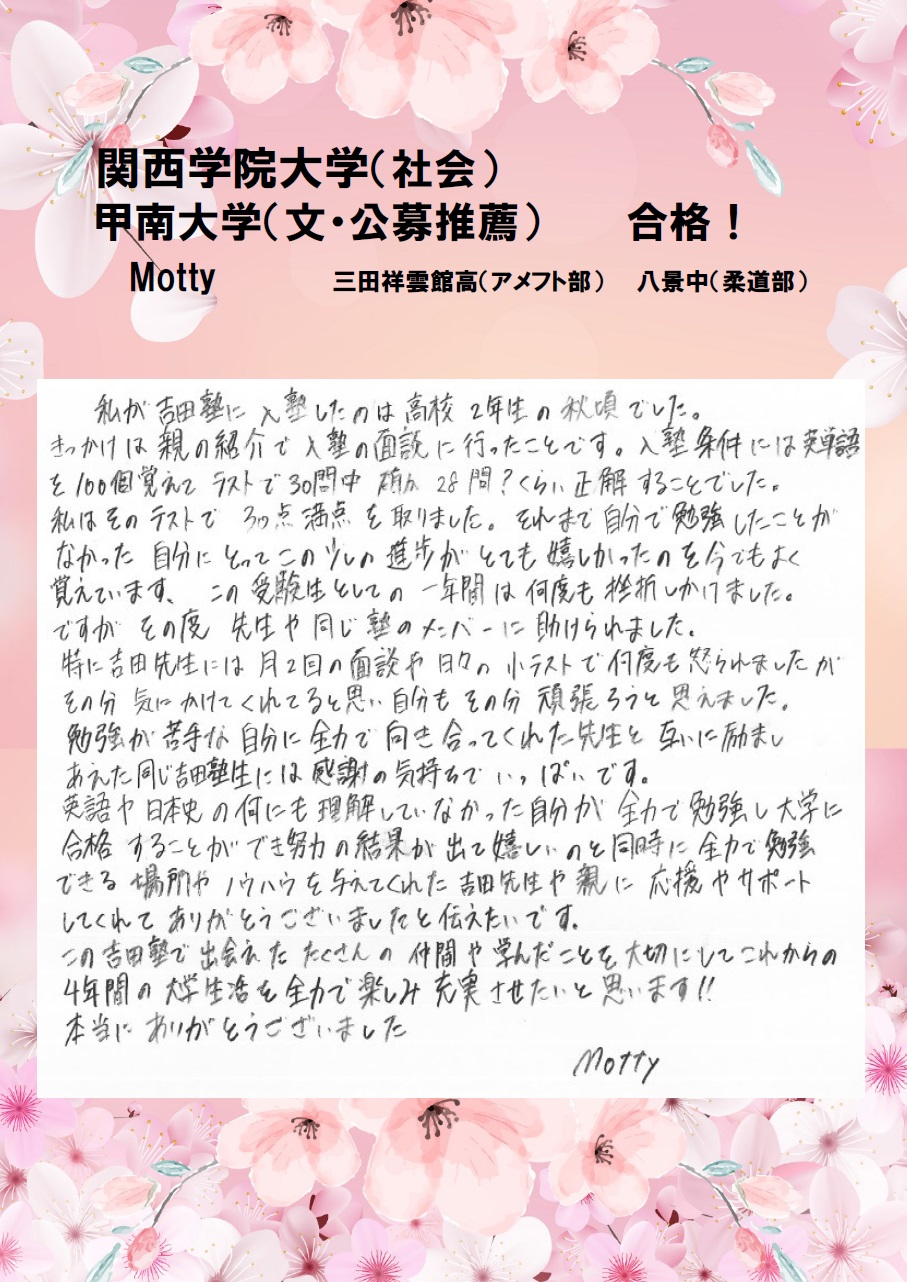 関西学院大学（社会）
甲南大学（文・公募推薦）　合格！
Motty　三田祥雲館高（アメフト部）　八景中（柔道部）
私が吉田塾に入塾したのは高校2年生の秋頃でした。
きっかけは親の紹介で入塾の面談に行ったことです。入塾条件には英単語
を100個覚えてテストで30問中確か28問?くらい正解することでした。
私はそのテストで30点満点を取りました。それまで自分で勉強したことが
なかった自分にとってこの少しの進歩がとても嬉しかったのを今でもよく
覚えています、この受験生としての一年間は何度も挫折しかけました。
ですがその度先生や同じ塾のメンバーに助けられました。
特に吉田先生には月2回の面談や日々の小テストで何度も怒られましたが
その分気にかけてくれてると思い自分もその分頑張ろうと思えました。
勉強が苦手な自分に全力で向き合ってくれた先生と互いに励まし
あえた同じ吉田塾生には感謝の気持ちでいっぱいです。
英語や日本史の何にも理解していなかった自分が全力で勉強し大学に
合格することができ努力の結果が出て嬉しいのと同時に全力で勉強
できる場所やノウハウを与えてくれた吉田先生や親に応援やサポート
してくれてありがとうございましたと伝えたいです。
この吉田塾で出会えたたくさんの仲間や学んだことを大切にしてこれからの
4年間の大学生活を全力で楽しみ充実させたいと思います!!
本当にありがとうございました
Motty